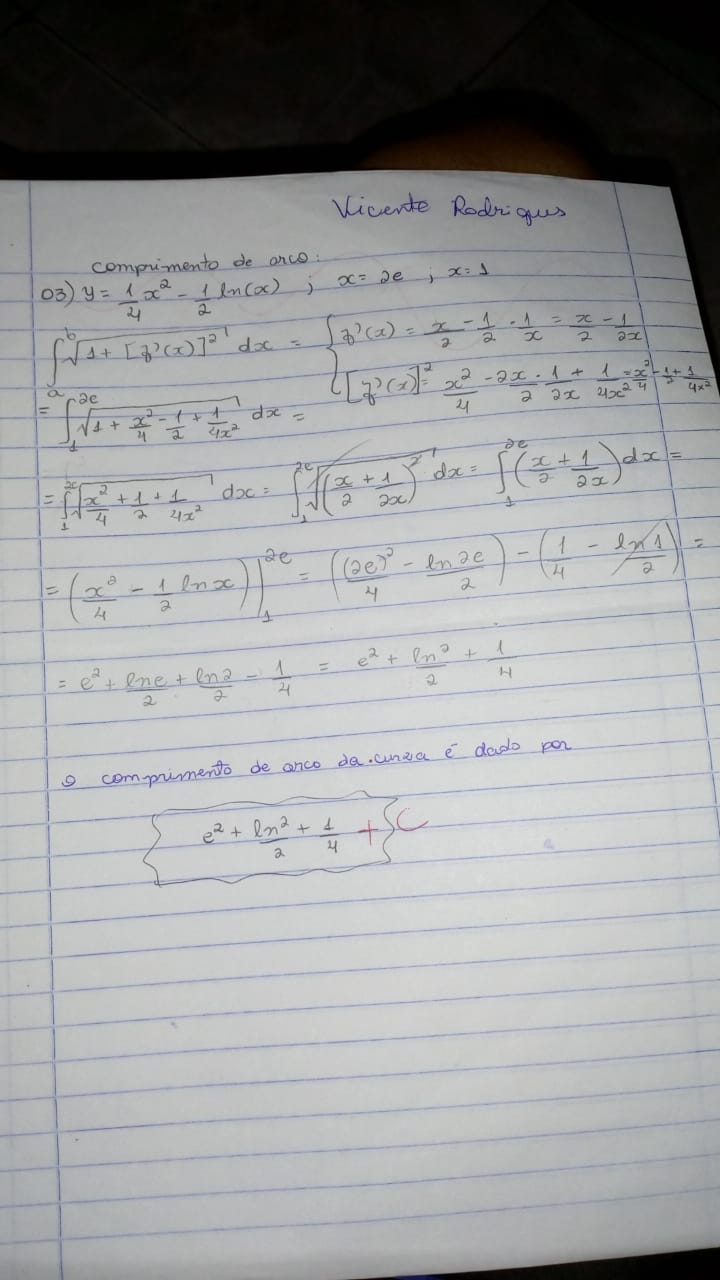 Vicente Rodrigus
comprimento de arco:
03) y = 1/4 x² - 1/2 ln(x) ; x = 2e ; x = 1
∫_a^b √(1 + [f'(x)]²) dx = { f'(x) = x/2 - 1/2 · 1/x = x/2 - 1/2x
[f'(x)]² = x²/4 - 2x/2 · 1/2x + 1/4x² = x²/4 - 1/2 + 1/4x²
= ∫_1^2e √(1 + x²/4 - 1/2 + 1/4x²) dx =
= ∫_1^2e √(x²/4 + 1/2 + 1/4x²) dx = ∫_1^2e √((x/2 + 1/2x)²) dx = ∫_1^2e (x/2 + 1/2x) dx =
= (x²/4 - 1/2 ln x) |_1^2e = ((2e)²/4 - ln2e/2) - (1/4 - ln1/2) =
= e² + lne/2 + ln2/2 - 1/4 = e² + ln²/2 + 1/4
o comprimento de arco da curva é dado por
e² + ln²/2 + 1/4 + C